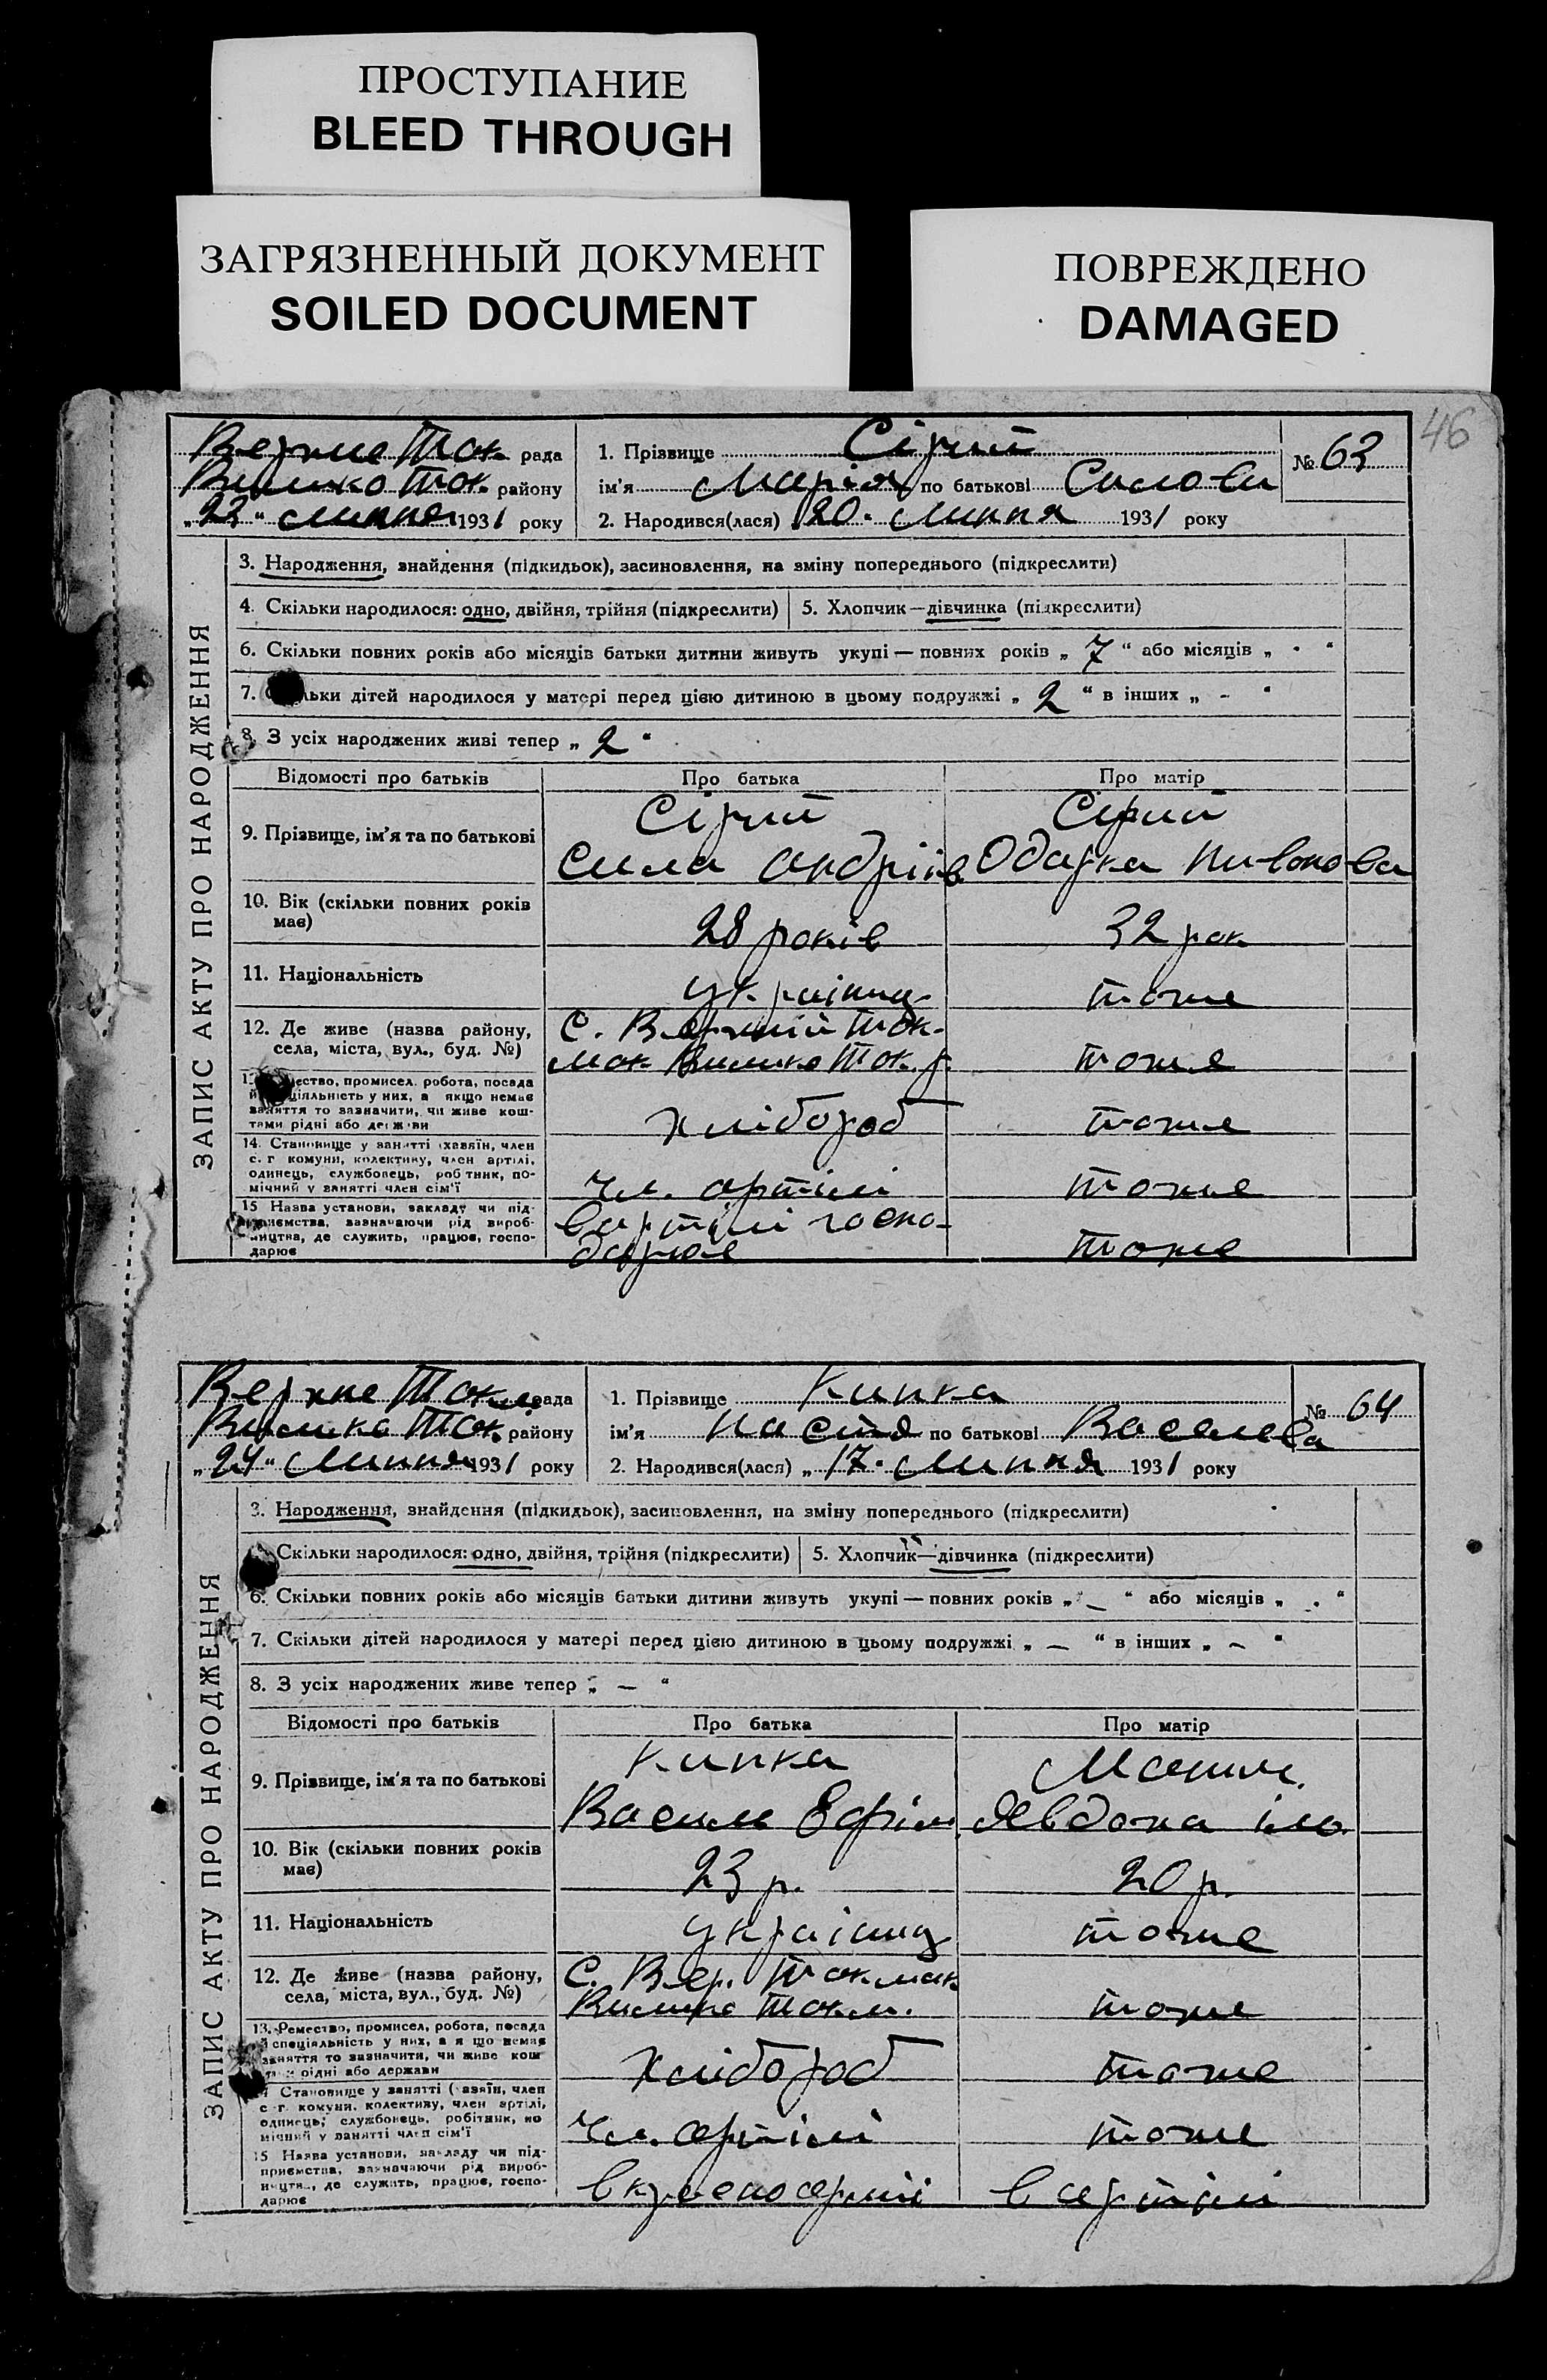 ПРОСТУПАНИЕ
BLEED THROUGH
ЗАГРЯЗНЕННЫЙ ДОКУМЕНТ
SOILED DOCUMENT
ПОВРЕЖДЕНО
DAMAGED
46
Верхне Ток. рада
Велико Ток. району
„23“ Липня 1931 року
1. Прізвище Сірий
ім'я Марія по батькові Силова
№ 63
2. Народився(лася) „20“ Липня 1931 року
ЗАПИС АКТУ ПРО НАРОДЖЕННЯ
3. Народження, знайдення (підкидьок), засиновлення, на зміну попереднього (підкреслити)
4. Скільки народилося: одно, двійня, трійня (підкреслити) 5. Хлопчик—дівчинка (підкреслити)
6. Скільки повних років або місяців батьки дитини живуть укупі — повних років „ 7 “ або місяців „ - “
7. Скільки дітей народилося у матері перед цією дитиною в цьому подружжі „ 2 “ в інших „ - “
8. З усіх народжених живі тепер „ 2 “
Відомості про батьків Про батька Про матір
9. Прізвище, ім'я та по батькові
Сірий Сірий
Сила Андріїв Одарка
10. Вік (скільки повних років має) 28 років 32 рок
11. Національність українц тоже
12. Де живе (назва району, села, міста, вул., буд. №)
С. Верхній Ток-
мак Велико Ток. р. тоже
13. Ремество, промисел, робота, посада й спеціяльність у них, а якщо немає заняття то зазначити, чи живе коштами рідні або держави
Хлібороб тоже
14. Становище у занятті (хазяїн, член с. г. комуни, колективу, член артілі, одинець, службовець, робітник, помічний у занятті член сім'ї
Чл. артілі тоже
15 Назва установи, закладу чи підприємства, зазначаючи рід виробництва, де служить, працює, господарює
В артілі госпо-
дарює тоже
Верхне Токм. рада
Велико Ток. району
„24“ Липня 1931 року
1. Прізвище Кипка
ім'я Настя по батькові Василева
№ 64
2. Народився(лася) „17“ Липня 1931 року
ЗАПИС АКТУ ПРО НАРОДЖЕННЯ
3. Народження, знайдення (підкидьок), засиновлення, на зміну попереднього (підкреслити)
Скільки народилося: одно, двійня, трійня (підкреслити) 5. Хлопчик—дівчинка (підкреслити)
6. Скільки повних років або місяців батьки дитини живуть укупі — повних років „ — “ або місяців „ - “
7. Скільки дітей народилося у матері перед цією дитиною в цьому подружжі „ — “ в інших „ — “
8. З усіх народжених живе тепер „ — “
Відомості про батьків Про батька Про матір
9. Прізвище, ім'я та по батькові
Кипка
Василь Єфім. Явдоха
10. Вік (скільки повних років має) 23 р. 20 р.
11. Національність українц тоже
12. Де живе (назва району, села, міста, вул., буд. №)
С. Вер. Токмак
Велико Токм. тоже
13. Ремество, промисел, робота, посада й спеціяльність у них, а якщо немає заняття то зазначити, чи живе коштами рідні або держави
Хлібороб тоже
14 Становище у занятті (хазяїн, член с. г. комуни, колективу, член артілі, одинець, службовець, робітник, помічний у занятті член сім'ї
Чл. артілі тоже
15 Назва установи, закладу чи підприємства, зазначаючи рід виробництва, де служить, працює, господарює
в артілі